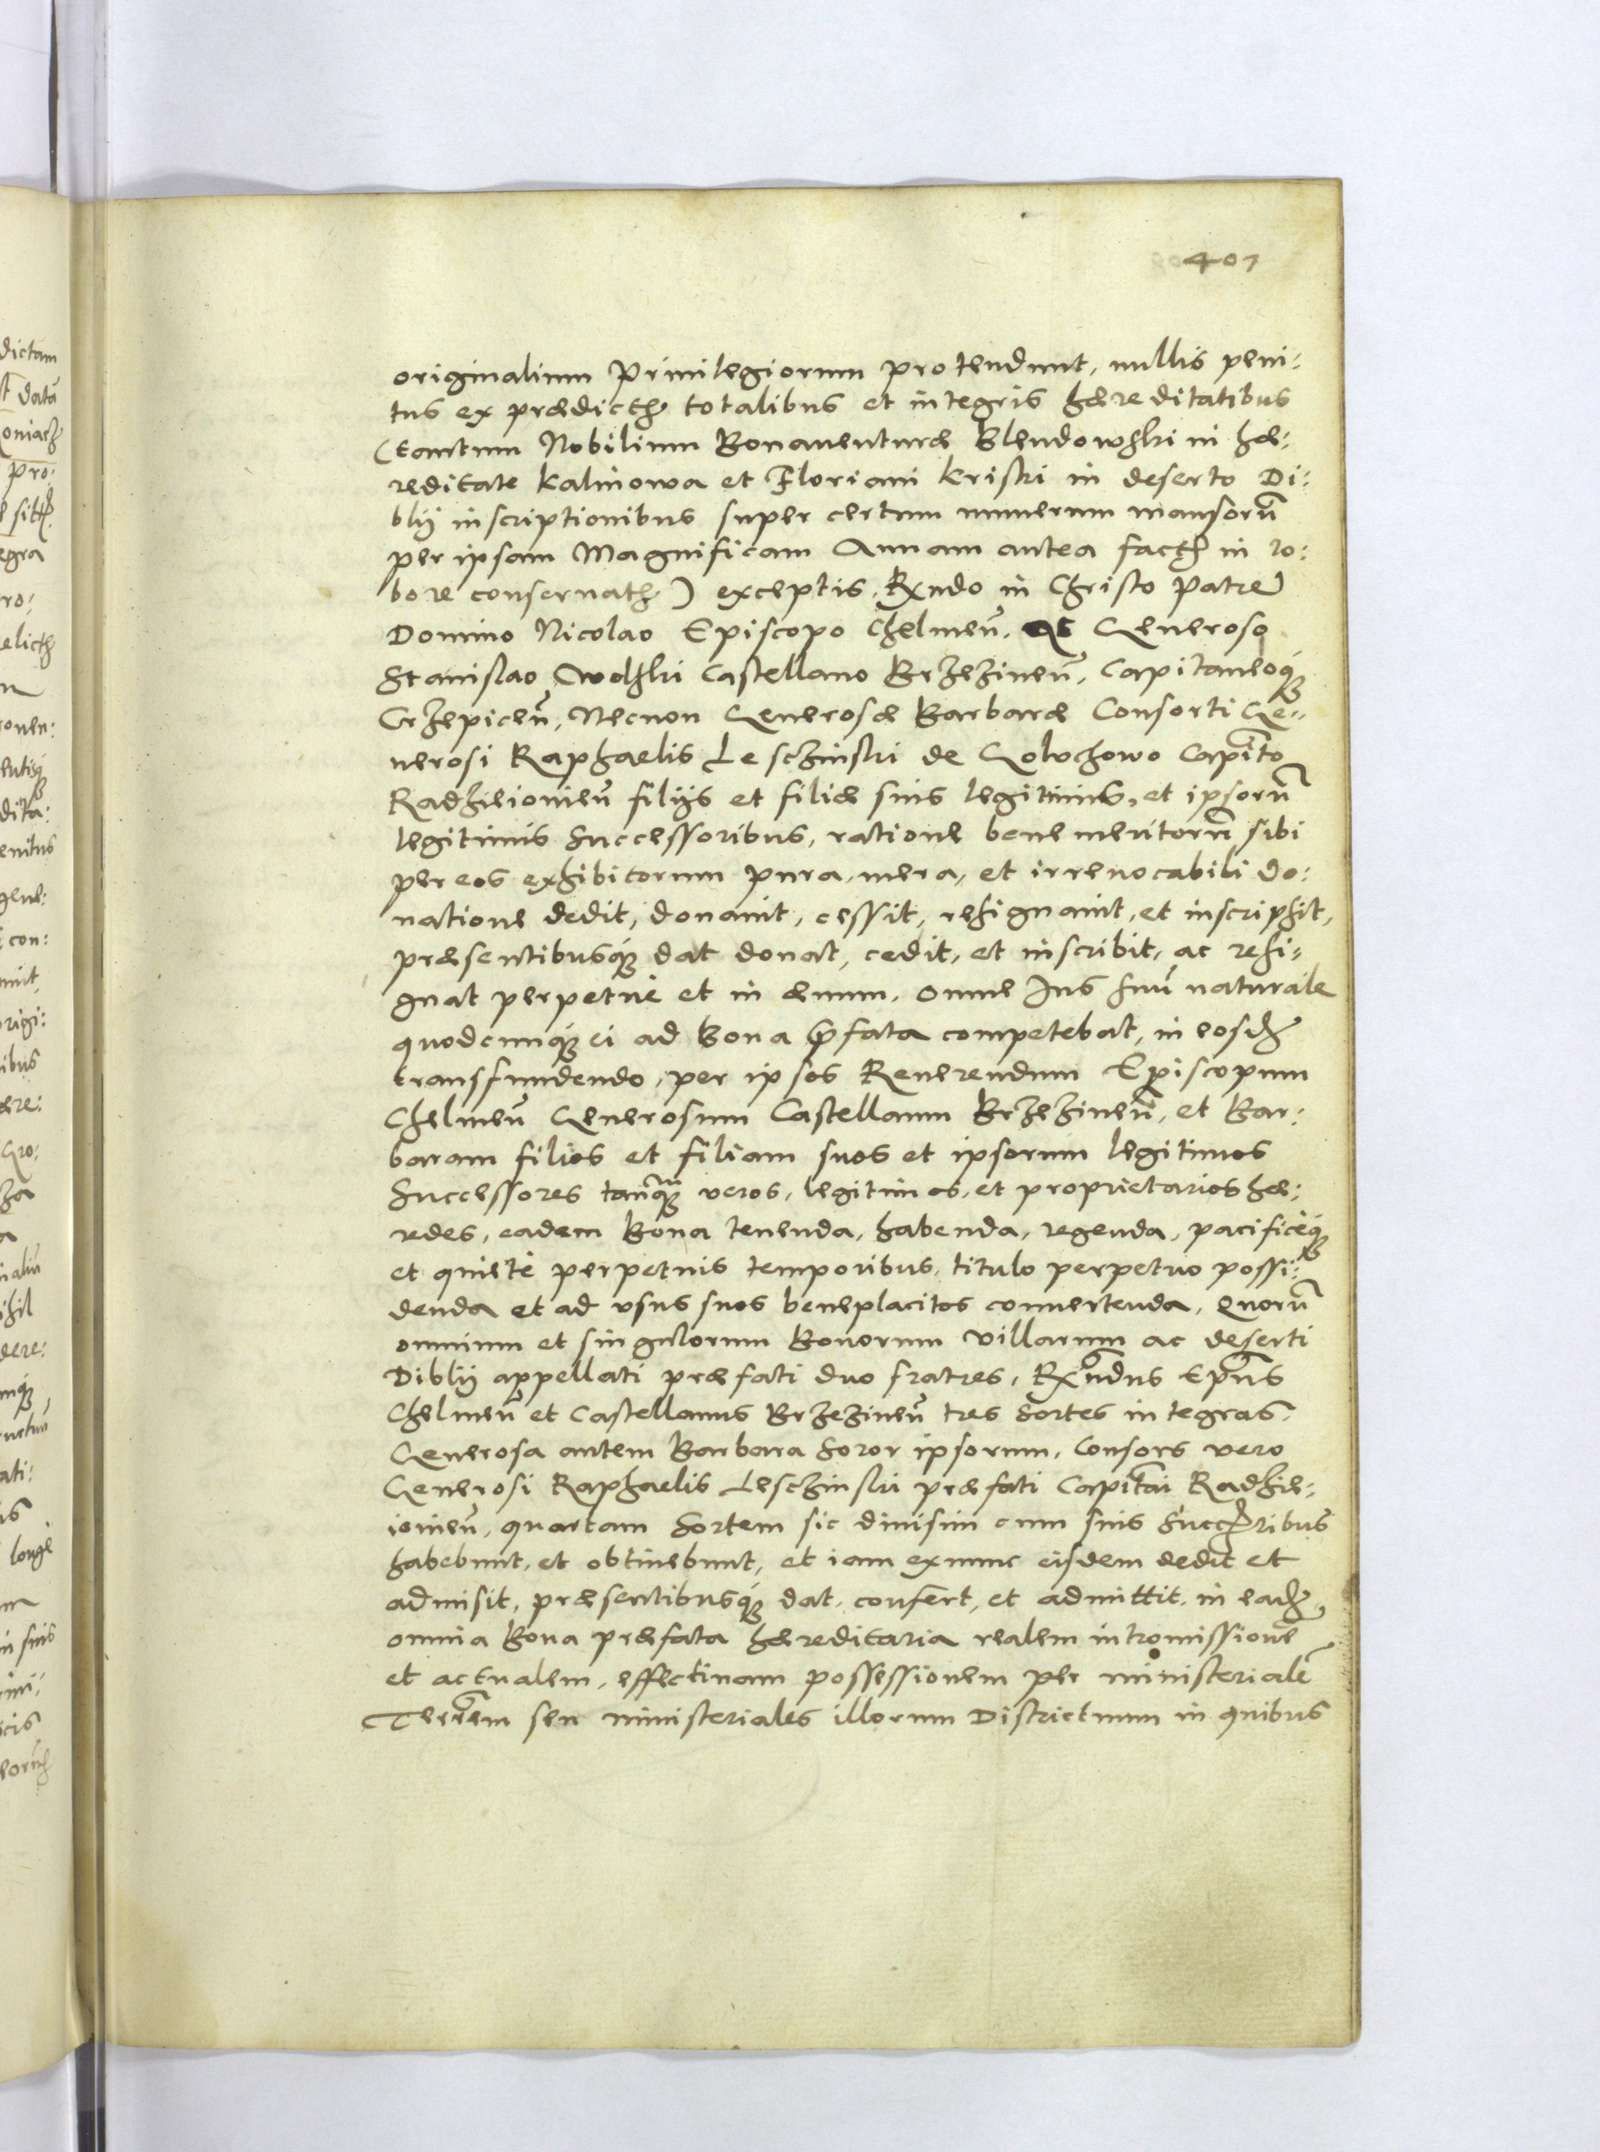 407
originalium Privilegiorum protendunt, nullis peni:
tus ex prædictis totalibus et integris hæreditatibus
(tantum Nobilium Bonaventuræ Blendowski in hæ:
reditate Kalinowa et Floriani Kriski in deserto Di:
blij inscriptionibus super certum numerum mansorū
per ipsam Magnificam Annam antea factis in ro:
bore conservatis) exceptis, Rxndo in Christo Patre
Domino Nicolao Episcopo Chelmeñ. et Generoso
Stanislao Wolski Castellano Brzezineñ, Capitaneoq́;
Crzepiceñ, Necnon Generosæ Barbaræ Consorti Ge:
nerosi Raphaelis Leschinski de Goluchowo Capito
Radzieiouieñ filijs et filiæ suis legitimis, et ipsorū
legitimis Successoribus, ratione bene meritorū sibi
per eos exhibitorum pura, mera, et irrevocabili do:
natione dedit, donavit, cessit, resignavit, et inscripsit,
præsentibusq́; dat donat, cedit, et inscribit, ac resi:
gnat perpetuè et in ævum, omne Ius suū naturale
quodcunq́; ei ad Bona p̃fata competebat, in eosdẽ
transfundendo, per ipsos Reverendum Episcopum
Chelmeñ Generosum Castellanum Brzezineñ, et Bar:
baram filios et filiam suos et ipsorum legitimos
Successores tanq̃; veros, legitimos, et proprietarios hæ:
redes, eadem Bona tenenda, habenda, regenda, pacificèq́;
et quietè perpetuis temporibus, titulo perpetuo possi:
denda et ad usus suos beneplacitos convertenda, Quorū
omnium et singulorum Bonorum Villarum ac deserti
Diblij appellati præfati duo fratres, Rx̃ndus Ep̃us
Chelmeñ et Castellanus Brzezineñ tres Sortes integras,
Generosa autem Barbara Soror ipsorum, Consors vero
Generosi Raphaelis Leschinski præfati Capitãi Radzie:
iouieñ, quartam Sortem sic divisim cum suis Succẽribus
habebunt, et obtinebunt, et iam ex nunc eisdem dedit et
admisit, præsentibusq́; dat, confert, et admittit, in eadẽ
omnia Bona præfata hæreditaria realem intromissionē
et actualem, effectivam possessionem per ministerialē
Terrẽm seu ministeriales illorum Districtuum in quibus